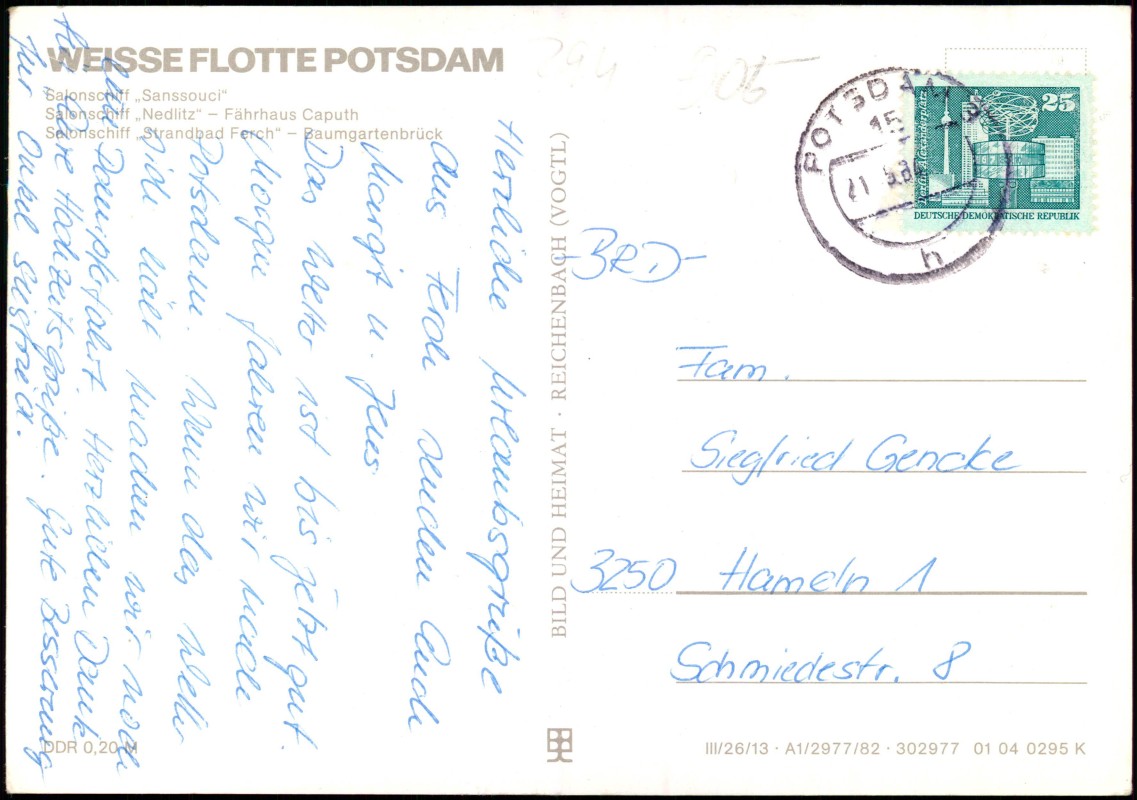 WEISSE FLOTTE POTSDAM
Salonschiff „Sanssouci"
Salonschiff „Nedlitz" – Fährhaus Caputh
Salonschiff „Strandbad Ferch" – Baumgartenbrück
Herzliche Urlaubsgrüße
aus Ferch senden Euch
Margit u. Jens
Das Wetter ist bis jetzt gut
Morgen fahren wir nach
Potsdam. Wenn das Wetter
sich hält machen wir noch
eine Dampferfahrt. Herzlichen Dank
für Eure Hochzeitsgrüße. Gute Besserung
für Onkel Siegfried.
DDR 0,20 M
BILD UND HEIMAT · REICHENBACH (VOGTL)
294
9,05
POTSDAM
15
21
h
25
Berlin, Alexanderplatz
DEUTSCHE DEMOKRATISCHE REPUBLIK
-BRD-
Fam.
Siegfried Gencke
3250 Hameln 1
Schmiedestr. 8
III/26/13 · A1/2977/82 · 302977 01 04 0295 K